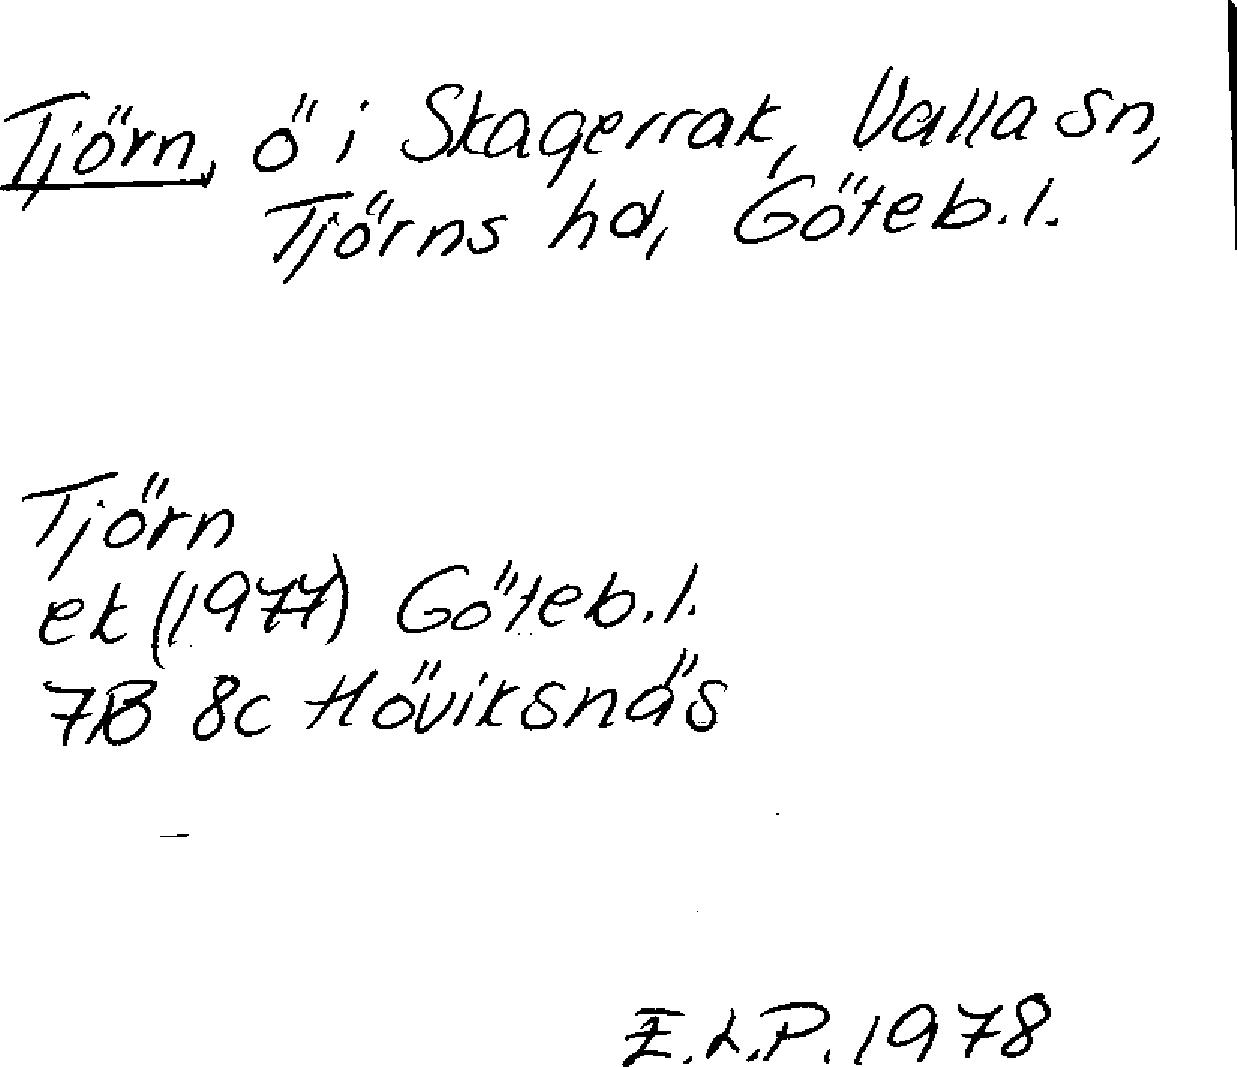 Tjörn, ö i Skagerrak, Valla sn,
Tjörns hd, Göteb. l.
Tjörn
ek (1977) Göteb. l.
7B 8c Höviksnäs
E.L.P. 1978